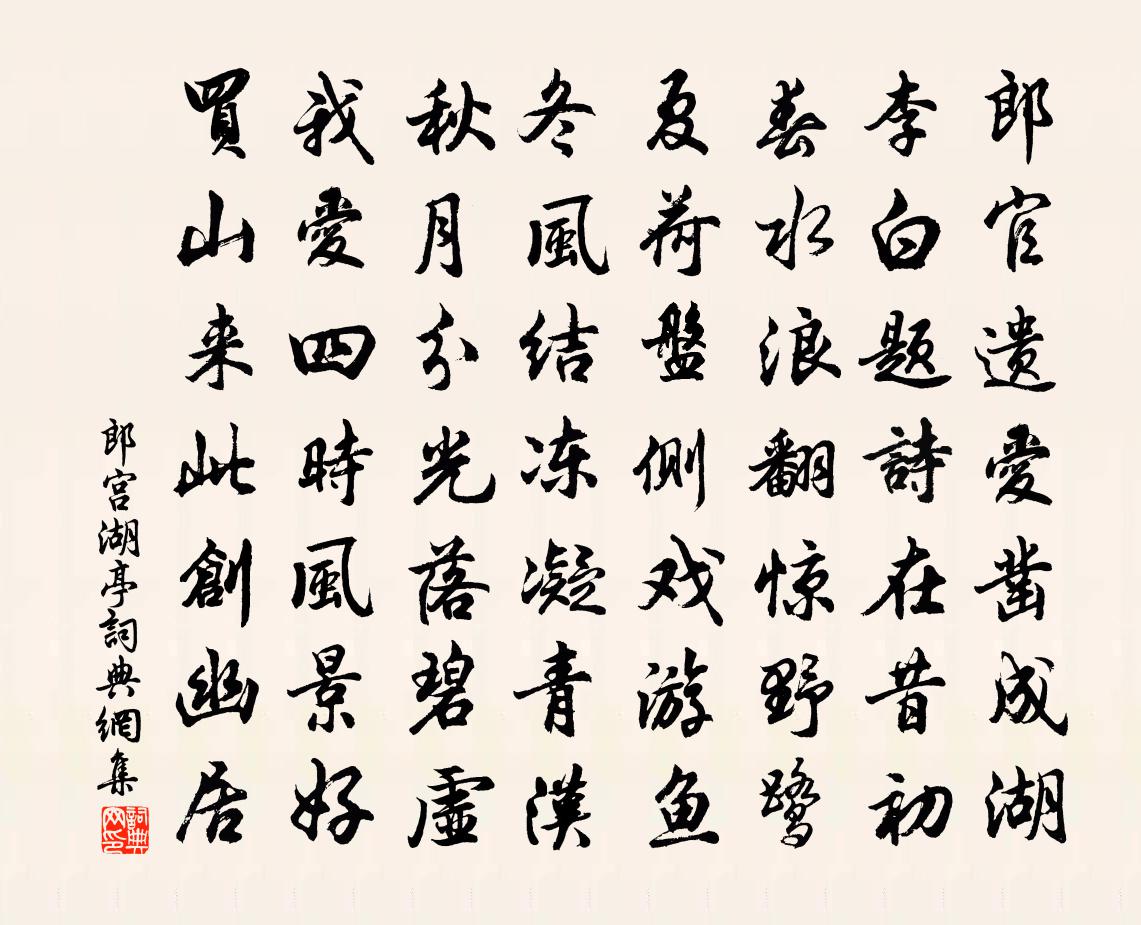 郎官遗愛凿成湖
李白题詩在昔初
春水浪翻惊野鹭
夏荷盤侧戏游鱼
冬風结冻凝青漢
秋月分光落碧虛
我愛四時風景好
買山来此創幽居
郎宫湖亭詞典網集
詞典网印